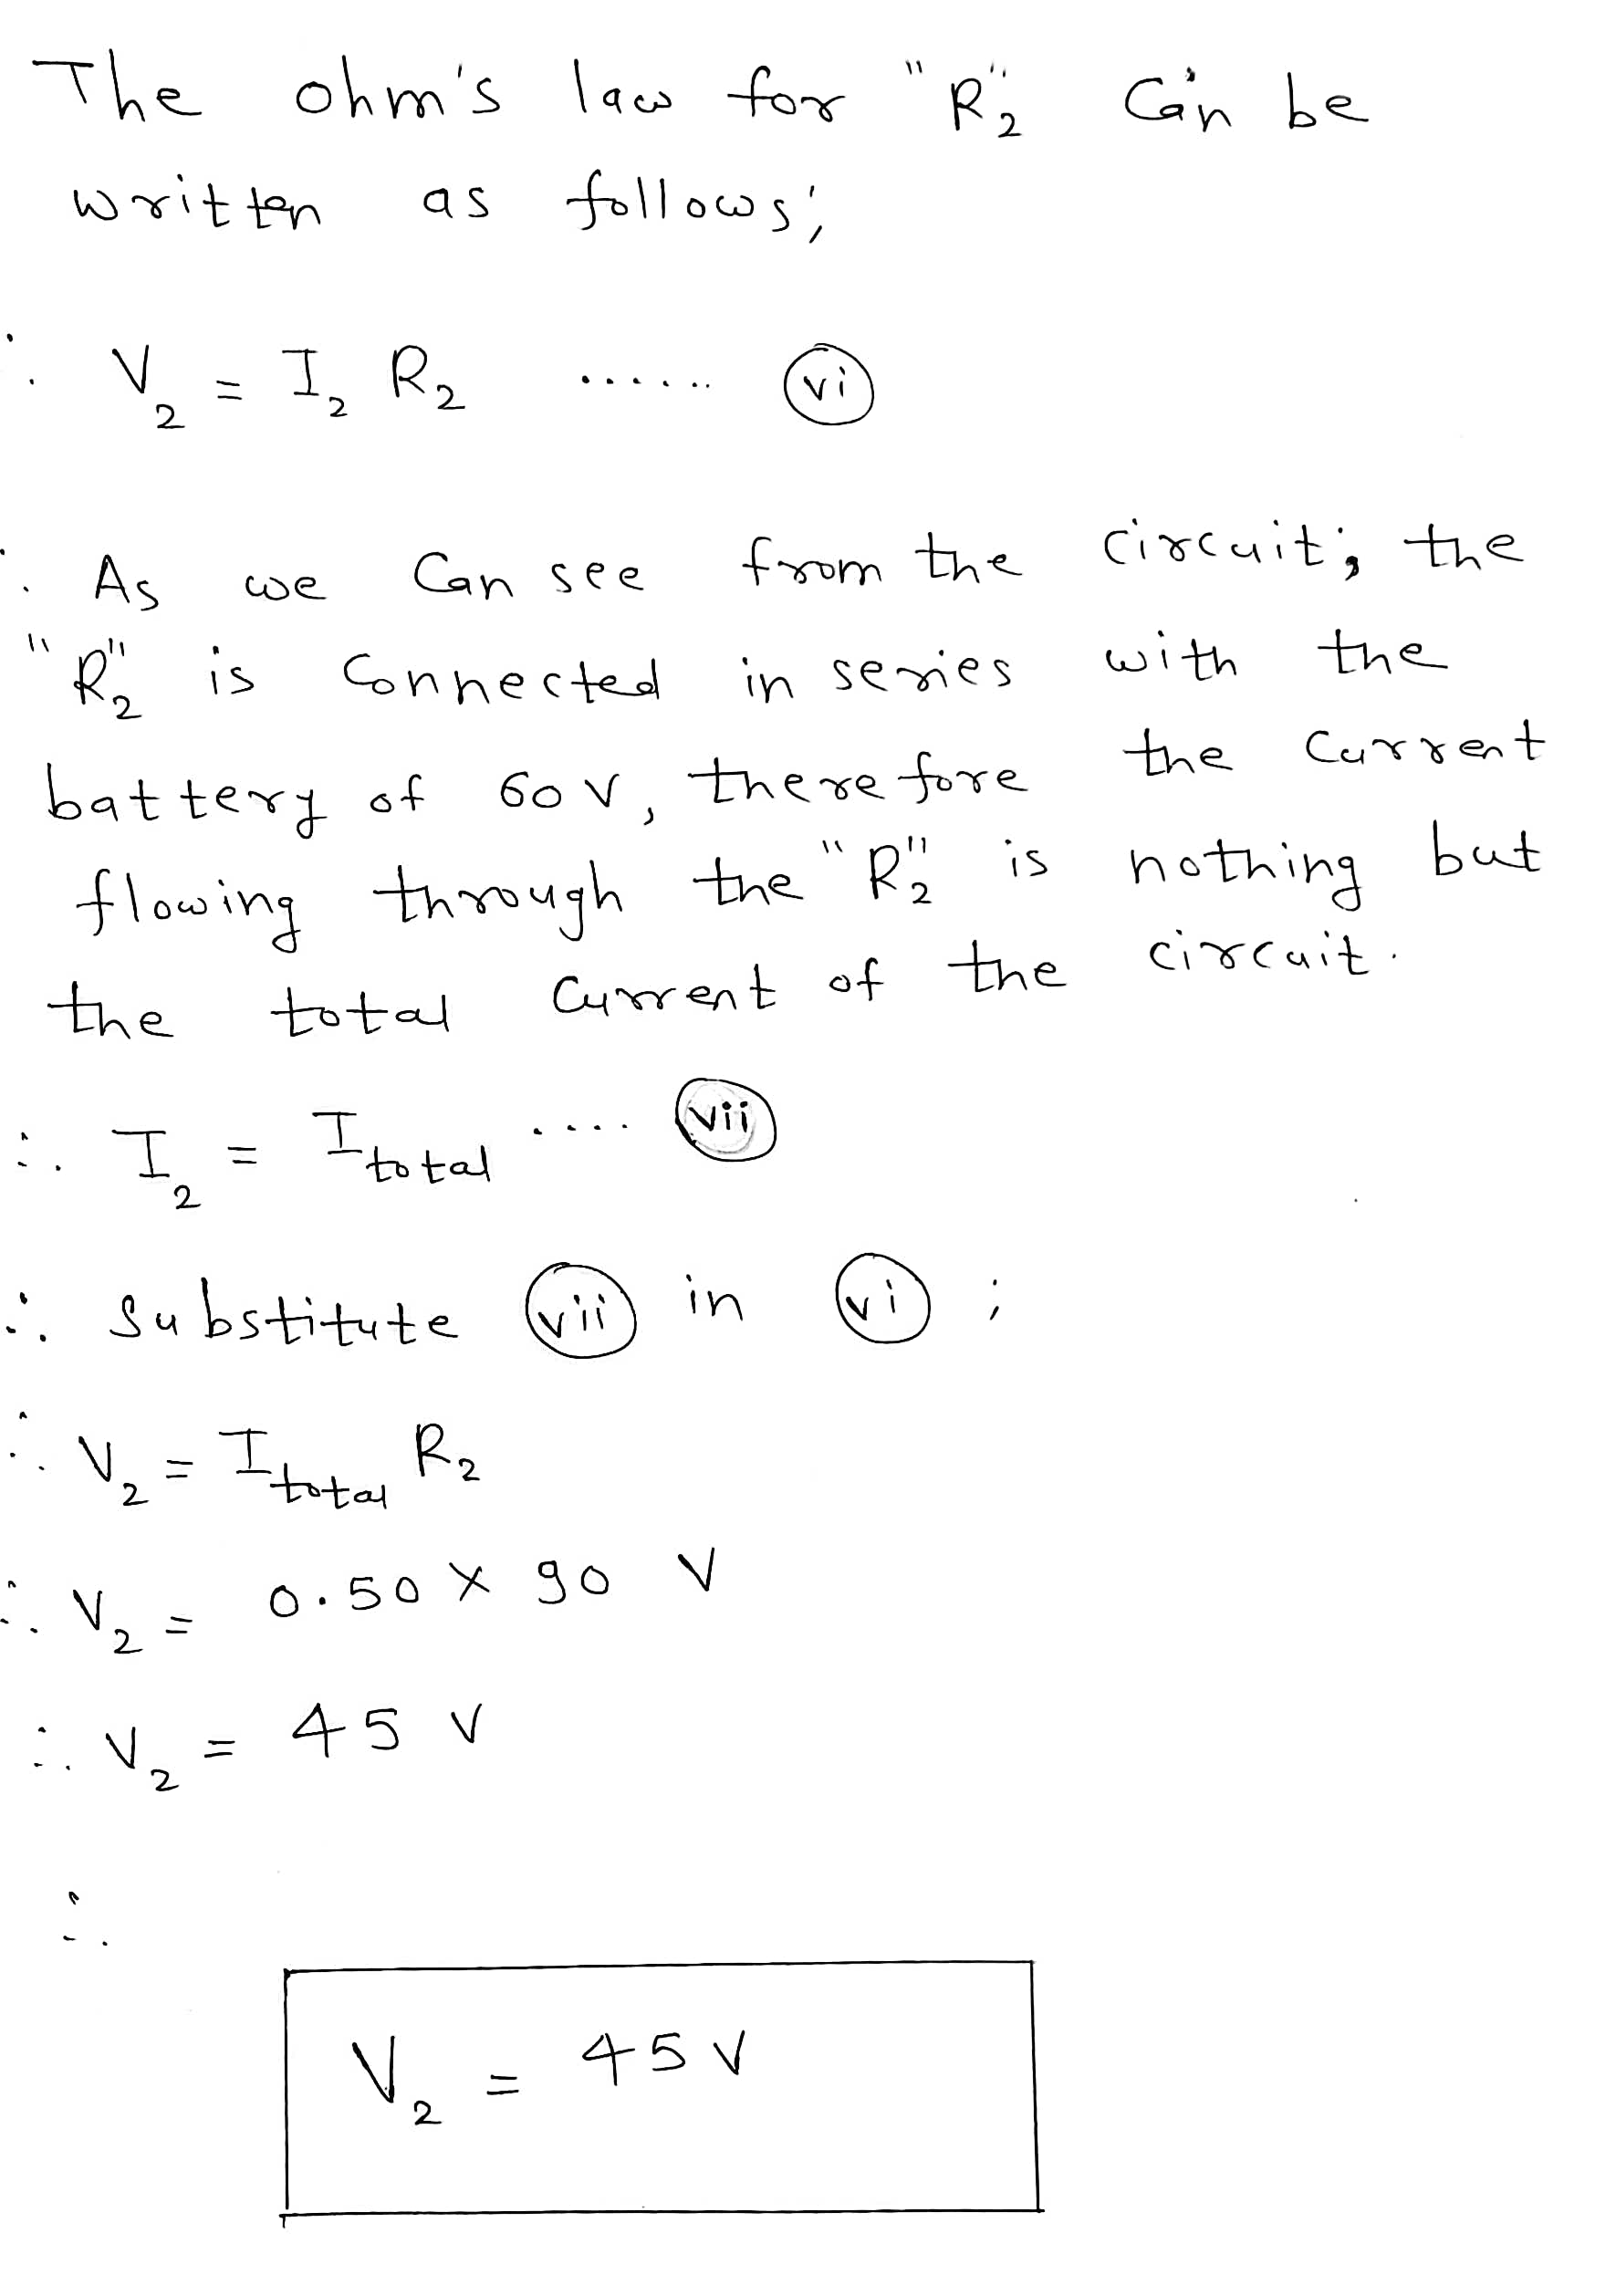 The ohm's law for "R₂" Can be
written as follows;
∴ V₂ = I₂ R₂ ...... (vi)
∴ As we Can see from the circuit; the
"R₂" is Connected in series with the
battery of 60 V, therefore the Current
flowing through the "R₂" is nothing but
the total Current of the circuit.
∴ I₂ = I total .... (vii)
∴ Substitute (vii) in (vi) ;
∴ V₂ = I total R₂
∴ V₂ = 0.50 × 90 V
∴ V₂ = 45 V
∴
V₂ = 45 V